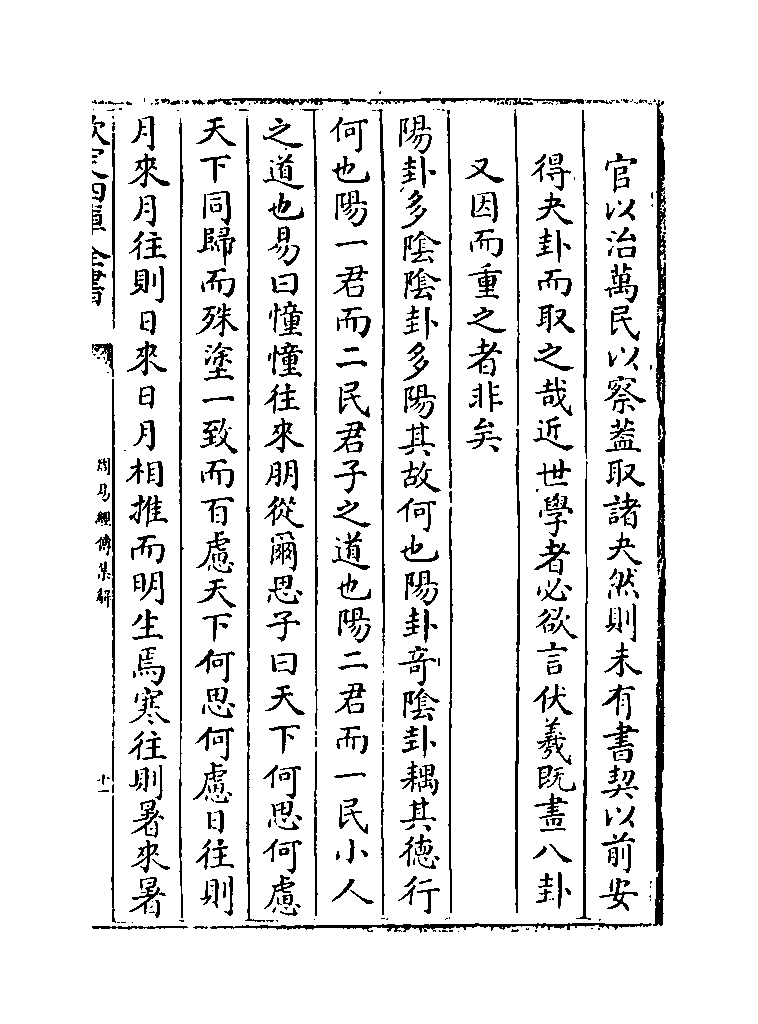 官以治萬民以察蓋取諸夬然則未有書契以前安
得夬卦而取之哉近世學者必欲言伏羲既畫八卦
又因而重之者非矣
陽卦多陰陰卦多陽其故何也陽卦奇陰卦耦其德行
何也陽一君而二民君子之道也陽二君而一民小人
之道也易曰憧憧往來朋從爾思子曰天下何思何慮
天下同歸而殊塗一致而百慮天下何思何慮日往則
月來月往則日來日月相推而明生焉寒往則暑來暑
欽定四庫全書
周易經傳集解
十一